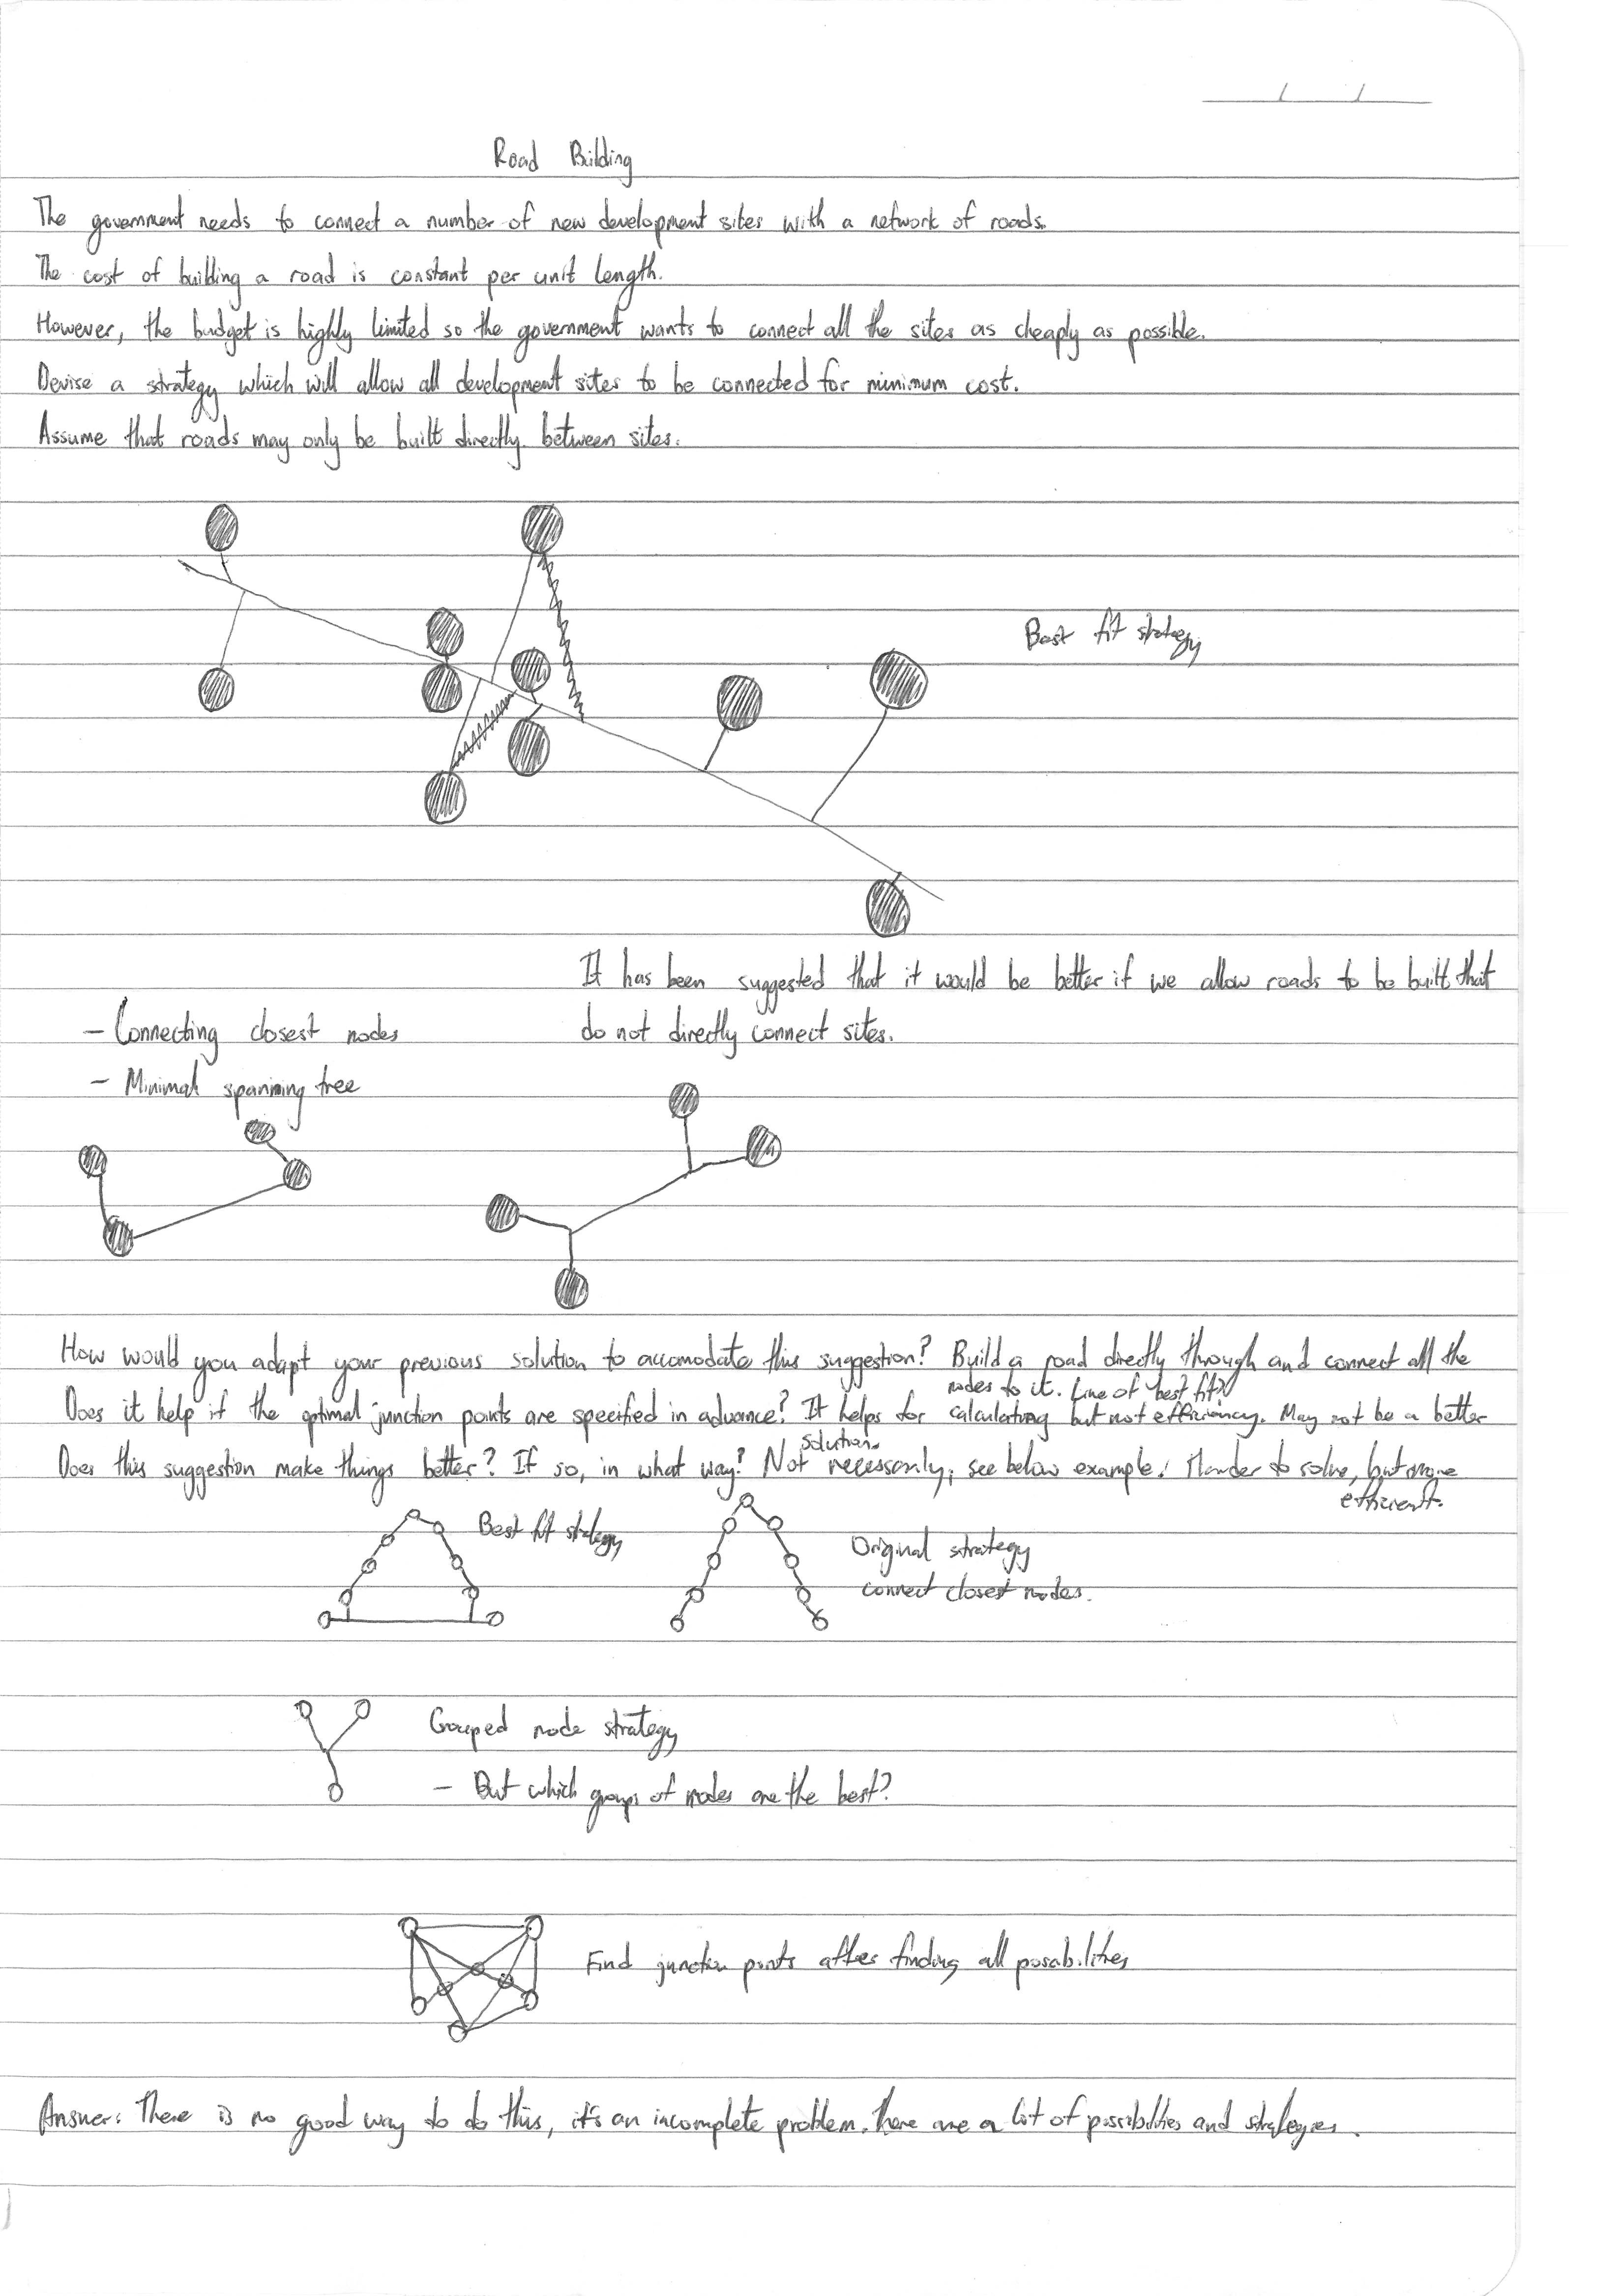 Road Building
The government needs to connect a number of new development sites with a network of roads.
The cost of building a road is constant per unit length.
However, the budget is highly limited so the government wants to connect all the sites as cheaply as possible.
Devise a strategy which will allow all development sites to be connected for minimum cost.
Assume that roads may only be built directly between sites.
Best fit strategy
It has been suggested that it would be better if we allow roads to be built that
do not directly connect sites.
- Connecting closest nodes
- Minimal spanning tree
How would you adapt your previous solution to accomodate this suggestion? Build a road directly through and connect all the
nodes to it. Line of best fit?
Does it help if the optimal junction points are specified in advance? It helps for calculating but not efficiency. May not be a better
solution.
Does this suggestion make things better? If so, in what way? Not necessarily, see below example. Harder to solve, but more
efficient.
Best fit strategy
Original strategy
connect closest nodes.
Grouped node strategy
- But which groups of nodes are the best?
Find junction points after finding all posabilities
Answer: There is no good way to do this, it's an incomplete problem. There are a lot of possibilties and strategies.